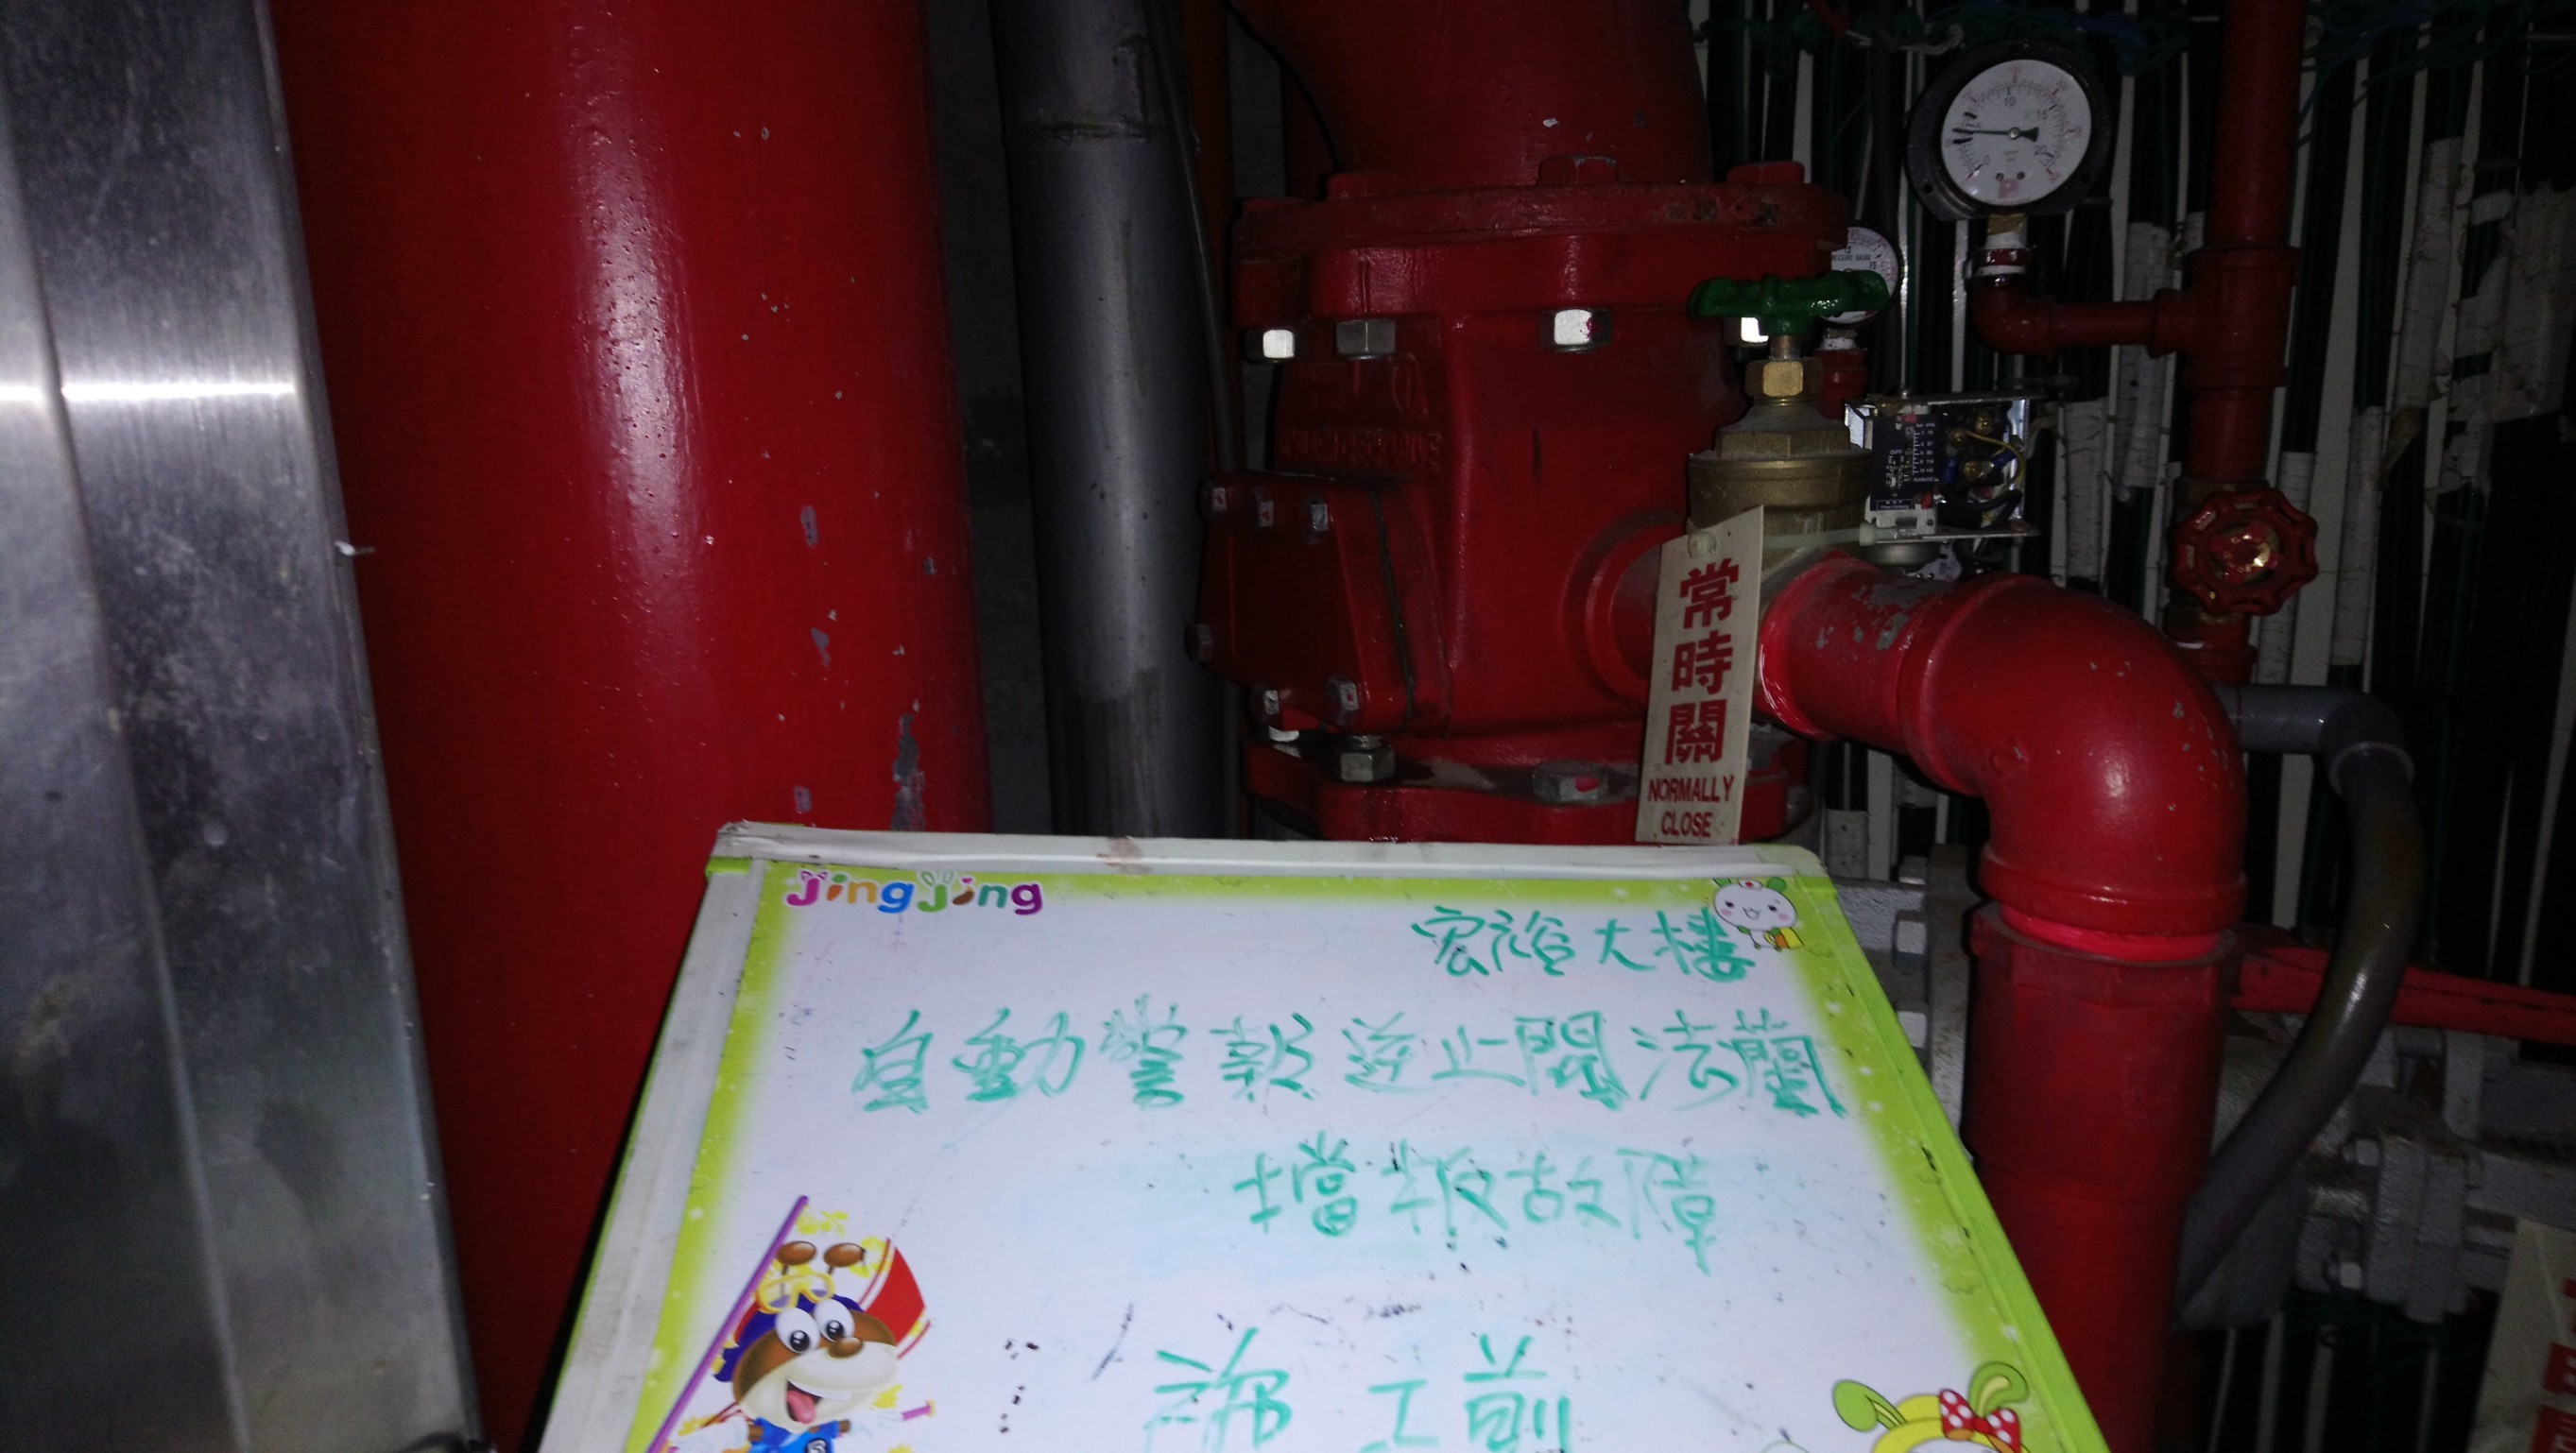 常時關
NORMALLY
CLOSE
JingJing
宏裕大樓
自動警報逆止閥法蘭
擋板故障
施工前